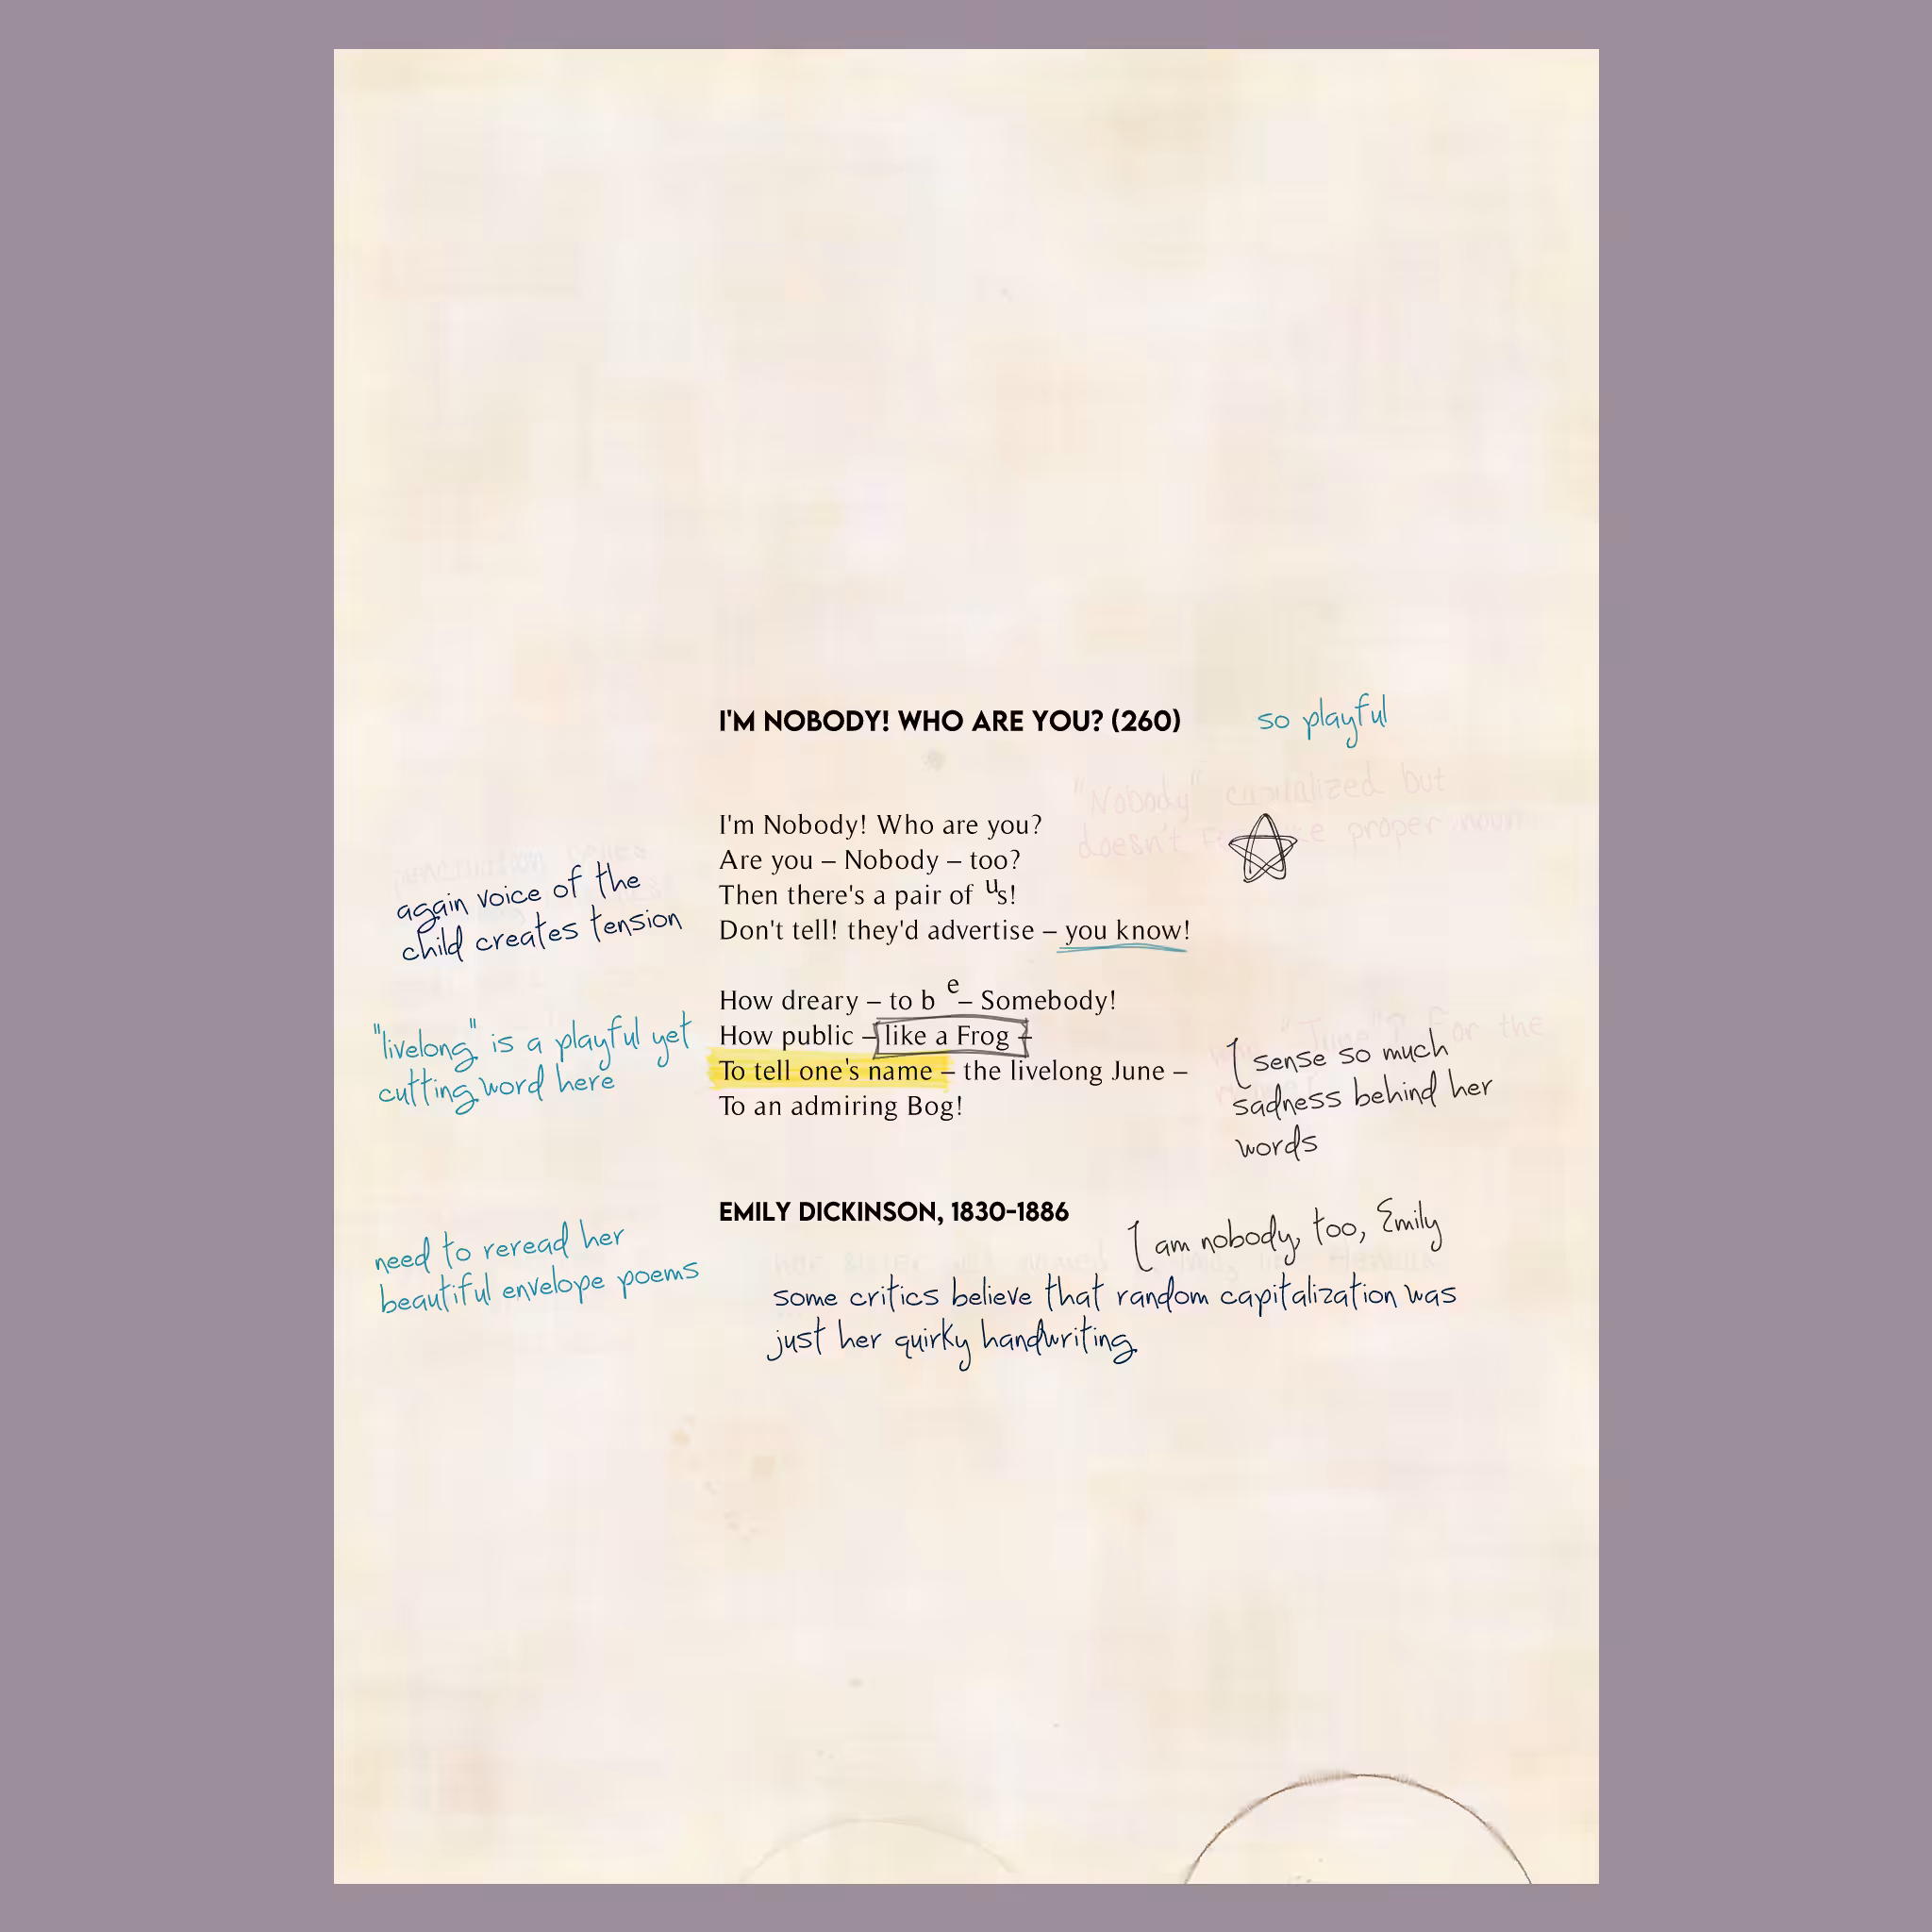 I'M NOBODY! WHO ARE YOU? (260)
so playful
"Nobody" capitalized but
doesn't proper noun
I'm Nobody! Who are you?
Are you – Nobody – too?
Then there's a pair of us!
Don't tell! they'd advertise – you know!
again voice of the
child creates tension
How dreary – to be – Somebody!
How public – like a Frog –
To tell one's name – the livelong June –
To an admiring Bog!
"livelong" is a playful yet
cutting word here
"June"? For the
I sense so much
sadness behind her
words
EMILY DICKINSON, 1830-1886
I am nobody, too, Emily
need to reread her
beautiful envelope poems
some critics believe that random capitalization was
just her quirky handwriting